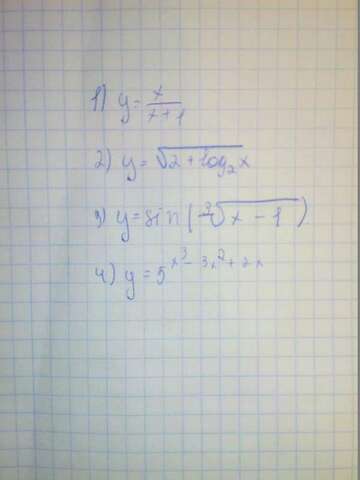 1) y = x/(x+1)
2) y = √(2 + log₂x)
3) y = sin(³√(x - 1))
4) y = 5^(x³ - 3x² + 2x)